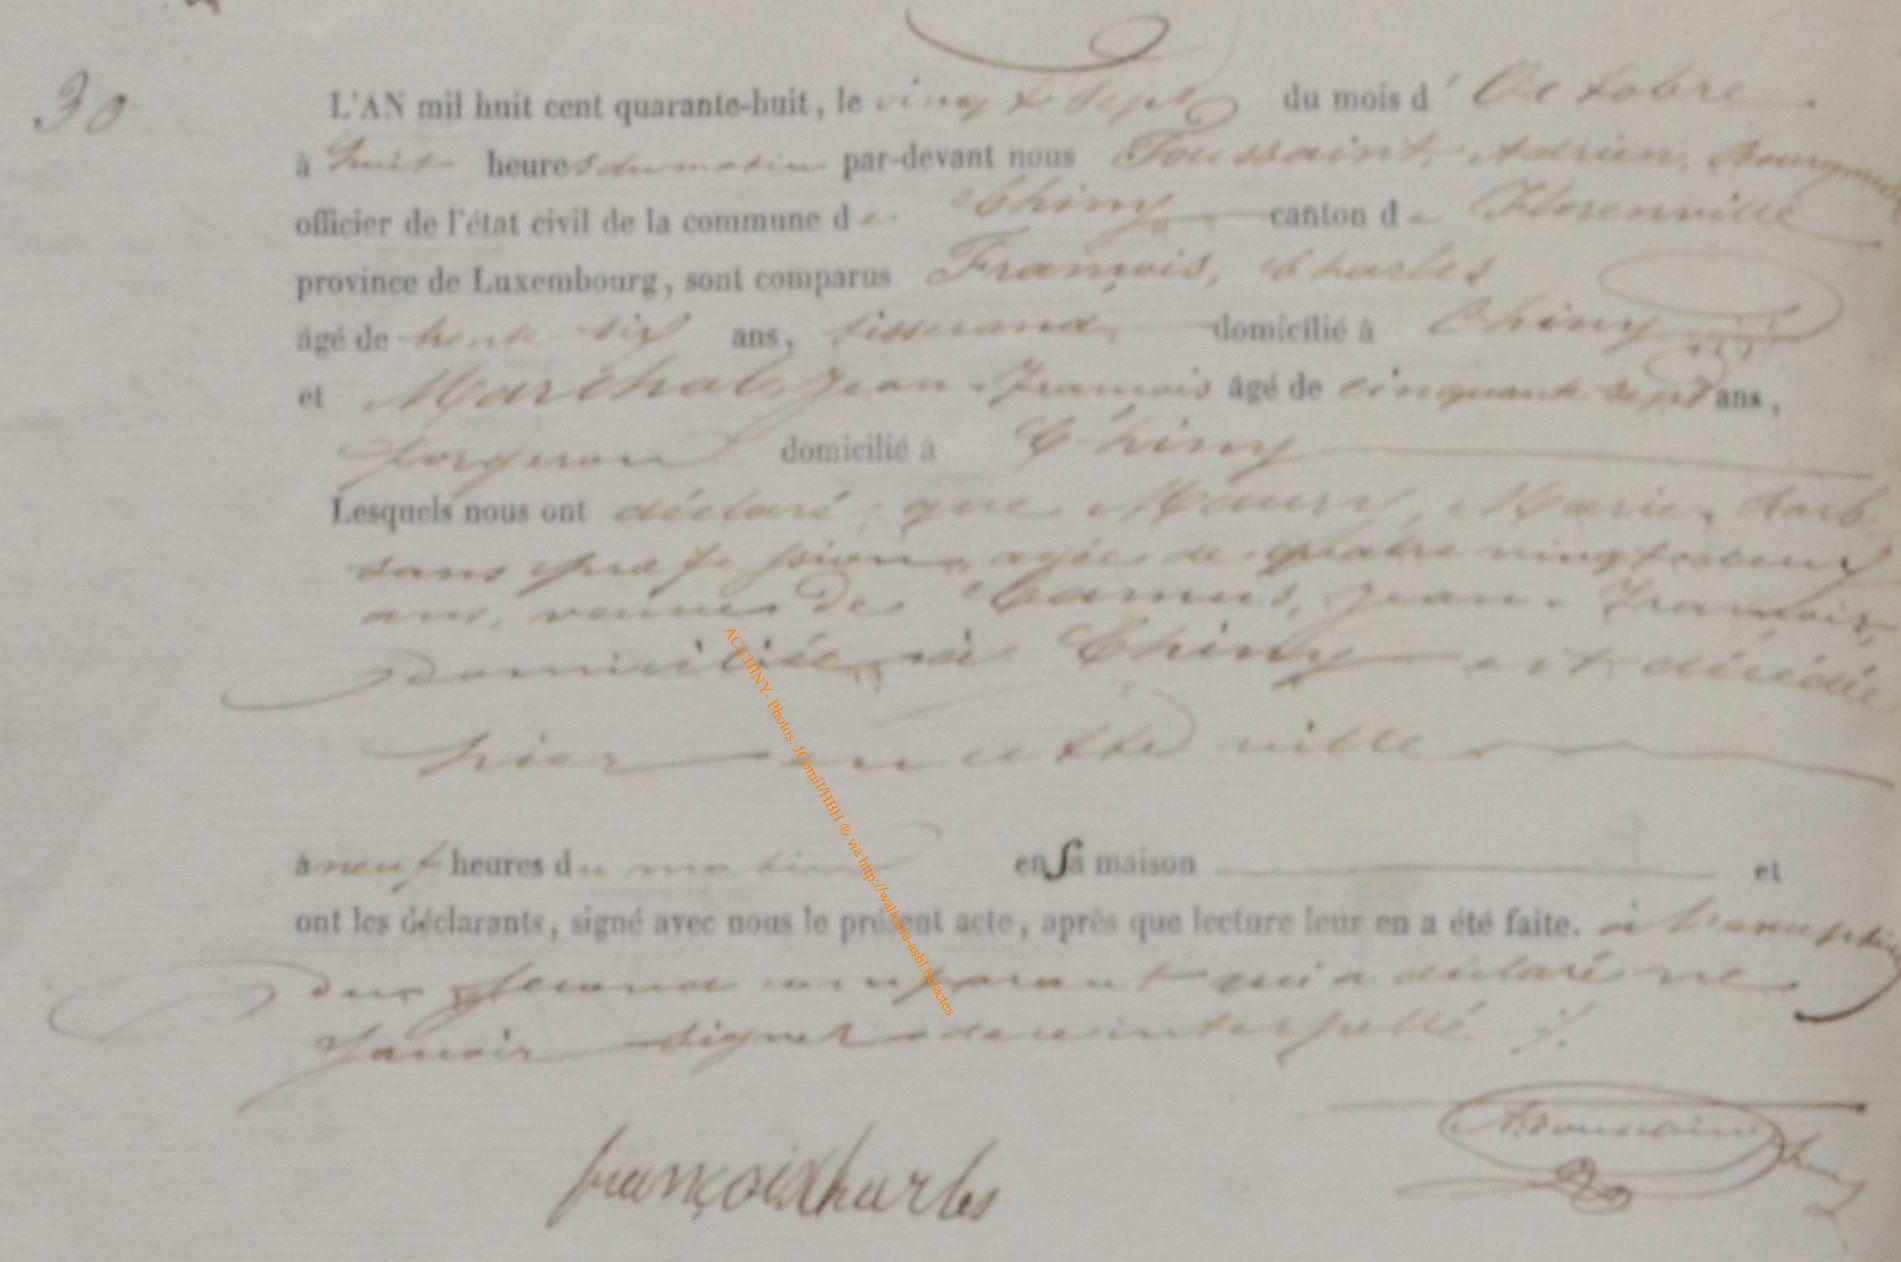 30
L'AN mil huit cent quarante-huit, le vingt sept du mois d' Octobre
à huit heures du matin par-devant nous Toussaint, Adrien, Bourgmestre
officier de l'état civil de la commune de Chiny canton de Florenville
province de Luxembourg, sont comparus François, Charles
âgé de trente six ans, tisserand, domicilié à Chiny
et Maréchal, Jean-François âgé de cinquante sept ans,
forgeron domicilié à Chiny
Lesquels nous ont déclaré que Maury, Marie, Barb
sans profession, agée de quatre vingt
ans, veuve de Camus, Jean-François,
domiciliée à Chiny est décédée
hier en cette ville
à neuf heures du matin en sa maison et
ont les déclarants, signé avec nous le présent acte, après que lecture leur en a été faite. à l'exception
du second comparant qui a déclaré ne
savoir signer de ce interpellé ./.
françois charles
A. Toussaint
ACCHINY- Photos: JCornil/HBH ® via http://wallonia-asbl.be/actes